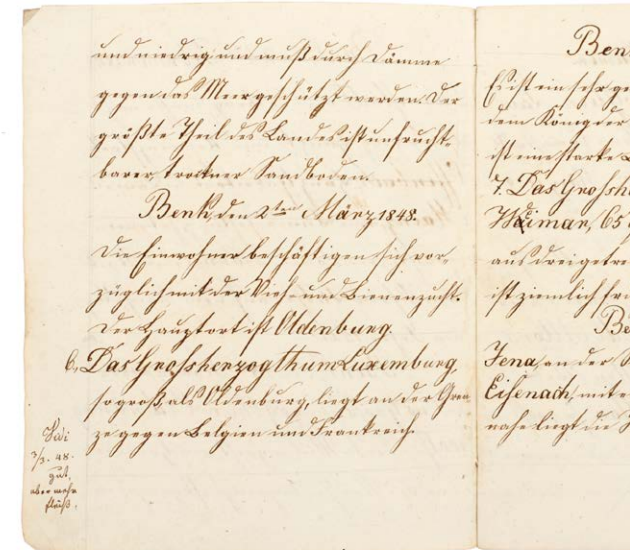 und niedrig und muß durch Dämme
gegen das Meer geschützt werden. Der
größte Theil des Landes ist unfrucht-
barer, trockner Sandboden.
Benk, den 2ten März 1848.
Die Einwohner beschäftigen sich vor-
züglich mit der Vieh- und Bienenzucht.
Der Hauptort ist Oldenburg.
6. Das Grossherzogthum Luxemburg,
so groß als Oldenburg, liegt an der Gren-
ze gegen Belgien und Frankreich.
3/3. 48.
gut,
aber mehr
Fleiß.
Ben
Es ist ein sehr ge
dem König der
ist eine starke
7. Das Grossh
Weimar, 65
aus drei getre
ist ziemlich fr
Be
Jena, an der S
Eisenach, mit e
nahe liegt die